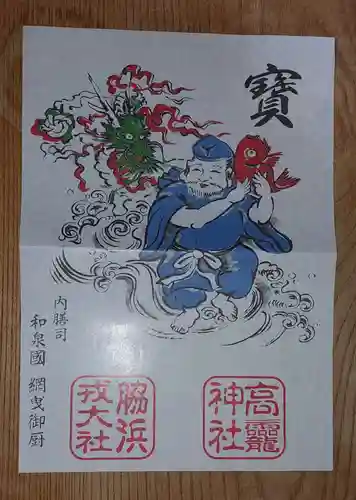 寶
内膳司
和泉國 網曳御厨
高龗神社
脇浜戎大社